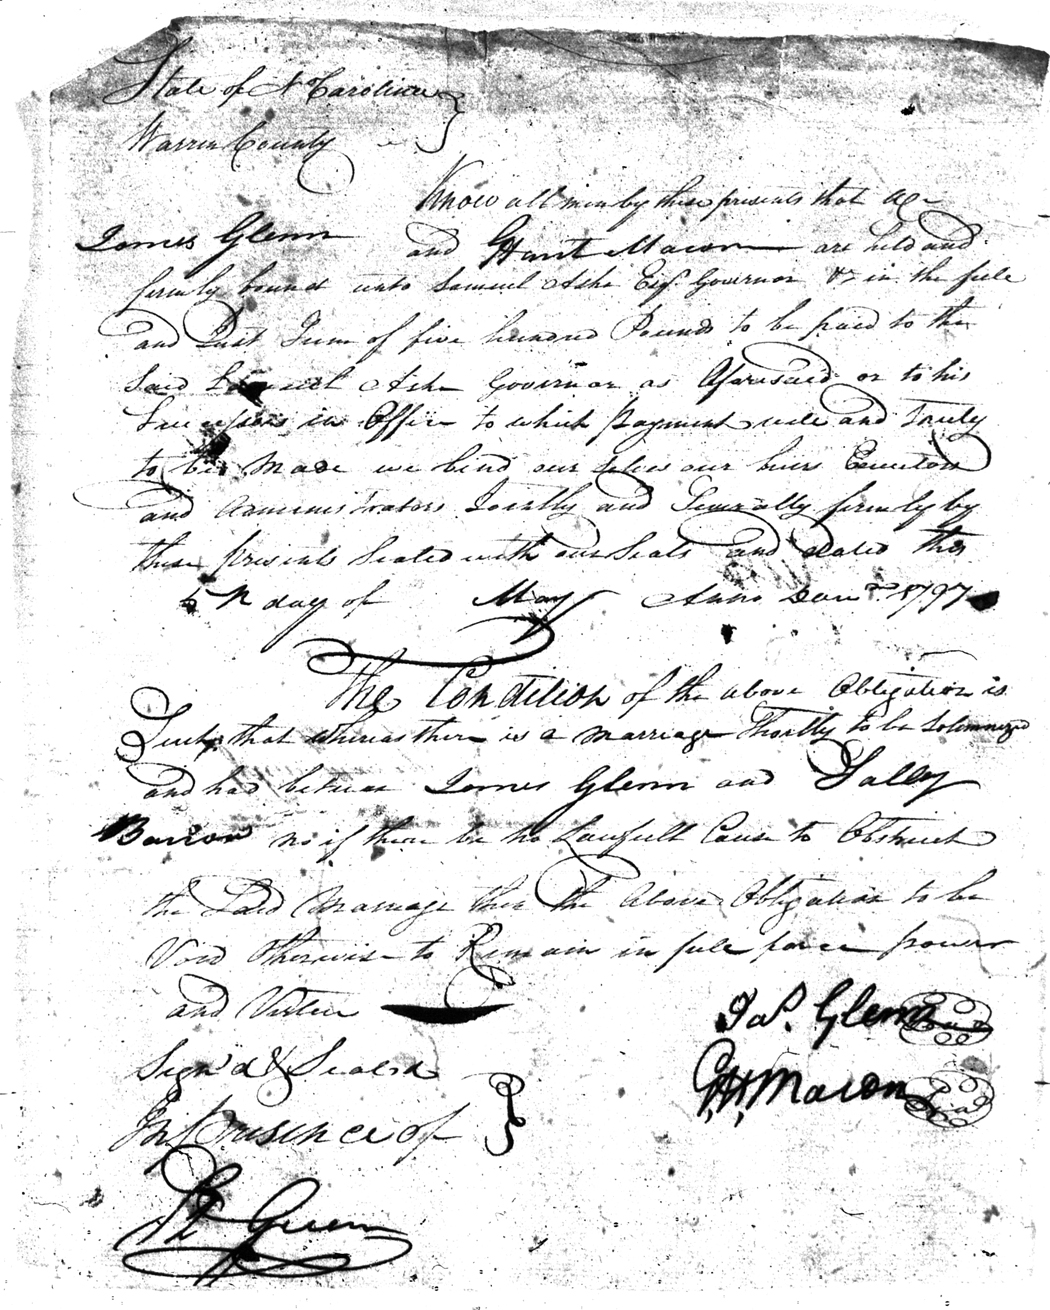 State of N Carolina
Warren County
Know all men by these presents that We
James Glenn and Hunt Macon are held and
firmly bound unto Samuel Ashe Esqr. Governor &c in the full
and Just Sum of five hundred Pounds to be paid to the
Said Samuel Ashe Governor as Aforesaid or to his
Successors in Office to which payment well and Truly
to be Made we bind our selves our heirs Executors
and Administrators Jointly and Severally firmly by
these presents Sealed with our Seals and dated this
day of May Anno Dom 1797
The Condition of the above Obligation is
Such that whereas there is a marriage Shortly to be Solemnized
and had between James Glenn and Sally
Barrow no if there be no Lawfull Cause to Obstruct
the Said Marriage then the Above Obligation to be
Void Otherwise to Remain in full force power
and Virtue
Jas. Glenn Seal
Sign'd & Seal'd
GH Macon Seal
In Presence of
Green